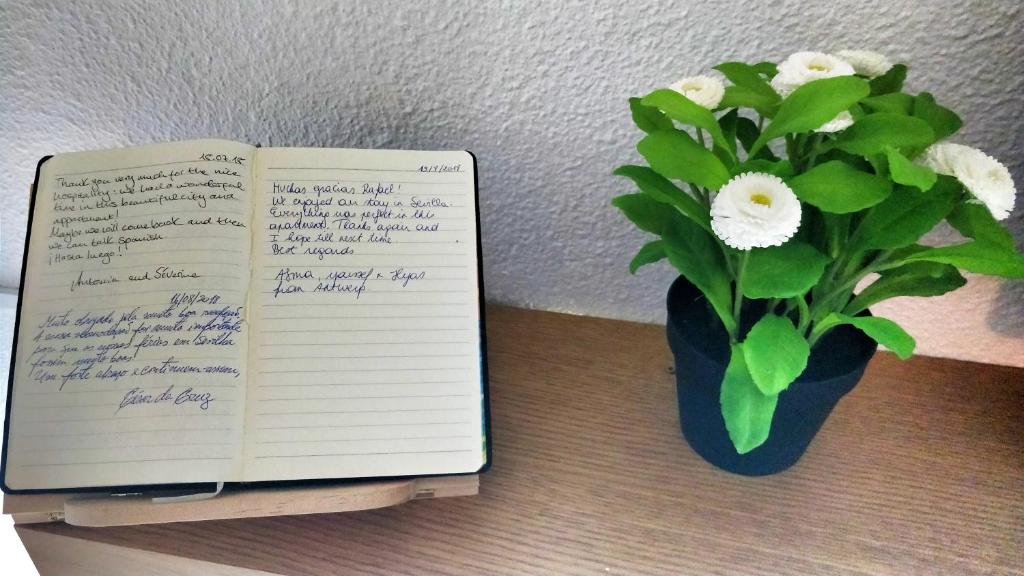 15.07.18
Thank you very much for the nice
hospitality! we had a wonderful
time in this beautiful city and
appartment!
Maybe we will come back and then
we can talk spanish
¡Hasta luego!
Antonia and Séverine
16/08/2018
Muito obrigado pela muito boa
A suas foi muito importante
para que as nossas férias em Sevilha
fossem muito boas!
Um forte abraço e continuem assim,
da Cruz
2018
Muchas gracias Rafael!
We enjoyed our stay in Sevilla.
Everything was perfect in this
apartment. Thanks again and
I hope till next time.
Best regards
Asma youssef & Ilyas
from Antwerp